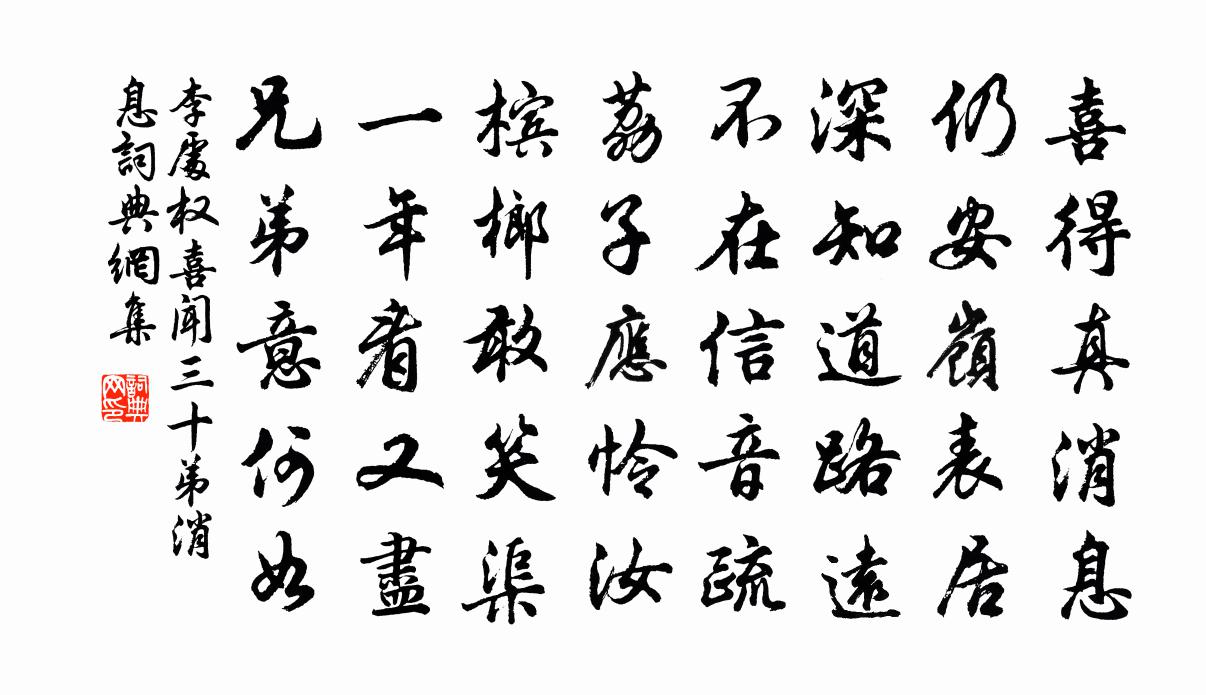 喜得真消息
仍安嶺表居
深知道路遠
不在信音疏
荔子應怜汝
檳榔敢笑渠
一年看又盡
兄弟意何如
李處权喜聞三十弟消
息詞典網集
詞典
网印